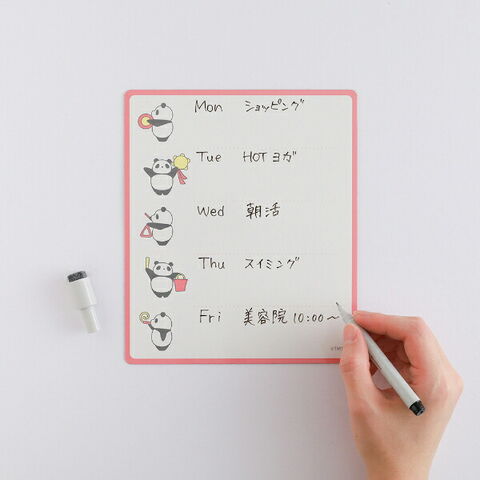 Mon ショッピング
Tue HOTヨガ
Wed 朝活
Thu スイミング
Fri 美容院 10:00～